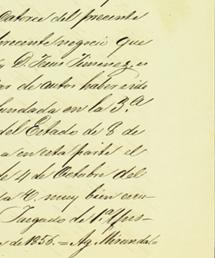 catorce del presente
presente negocio que
D. Juan Jimenez e
de autos haber sido
fundada en la 3.ª
del Estado de 8 de
a en esta parte el
de 4 de Octubre del
C. muy bien con
Juzgado de 1.ª Yns
de 1856. = Ag. Miranda